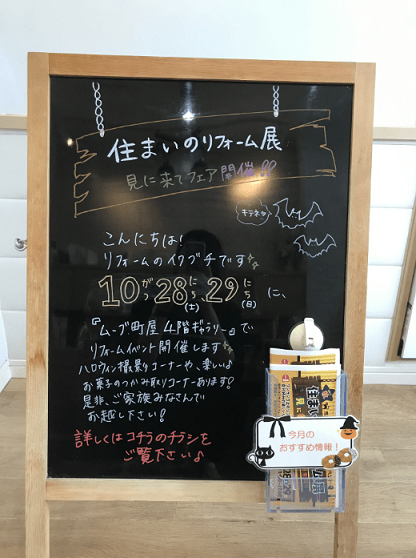 住まいのリフォーム展
見に来てフェア開催!!
キラキラ
こんにちは!
リフォームのイワブチです
10がつ28にち(土)、29にち(日)に、
『ムーブ町屋 4階ギャラリー』で
リフォームイベント開催します
ハロウィン撮影コーナーや、楽しい♪
お菓子のつかみ取りコーナーあります!
是非、ご家族みなさんで
お越し下さい!
詳しくはコチラのチラシを
ご覧下さい♪
今月の
おすすめ情報!